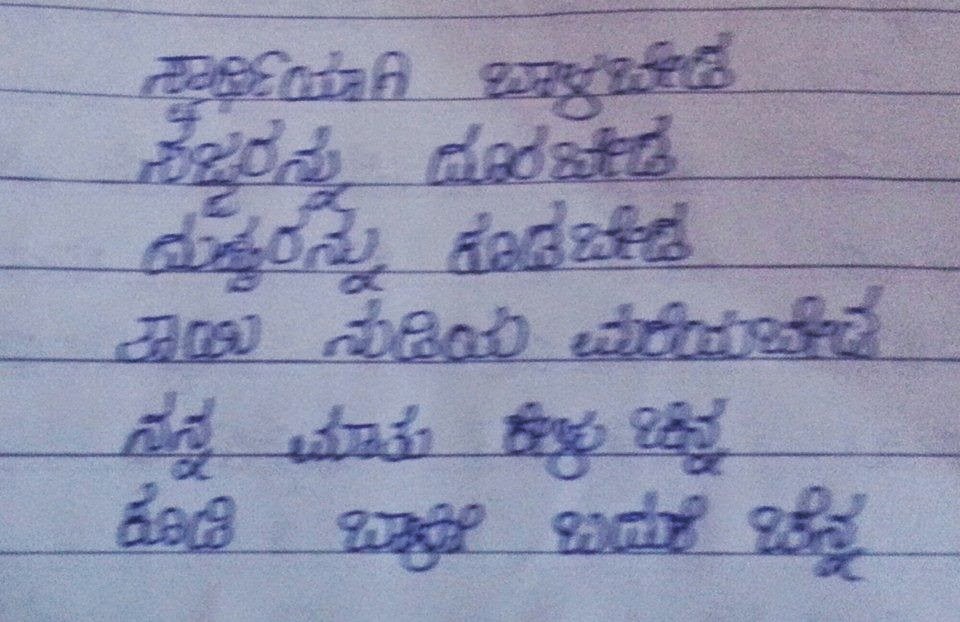 ಸ್ವಾರ್ಥಿಯಾಗಿ ಬಾಳಬೇಡ
ಸಜ್ಜರನ್ನು ದೂರಬೇಡ
ದುಷ್ಟರನ್ನು ಕೂಡಬೇಡ
ತಾಯಿ ನುಡಿಯ ಮರೆಯಬೇಡ
ನನ್ನ ಮಾತು ಕೇಳು ಚಿನ್ನ
ಕೂಡಿ ಬಾಳಿ ಬದುಕೆ ಚೆನ್ನ